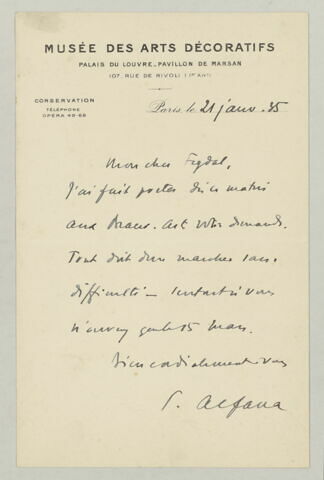 MUSÉE DES ARTS DÉCORATIFS
PALAIS DU LOUVRE_PAVILLON DE MARSAN
107, RUE DE RIVOLI (1er ARR)
CONSERVATION
TÉLÉPHONE
OPÉRA 49-68
Paris, le 21 janv. 35
Mon cher
J'ai fait porter dès ce matin
aux Beaux-Arts votre demande.
Tout doit donc marcher sans
difficulté —
15 mars.
Bien cordialement à vous